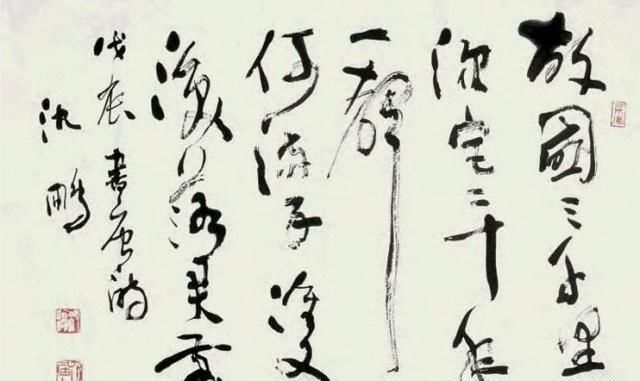 故國三千里
深宫二十年
一聲
何滿子雙
淚落君前
戊辰書唐詩
沈鵬